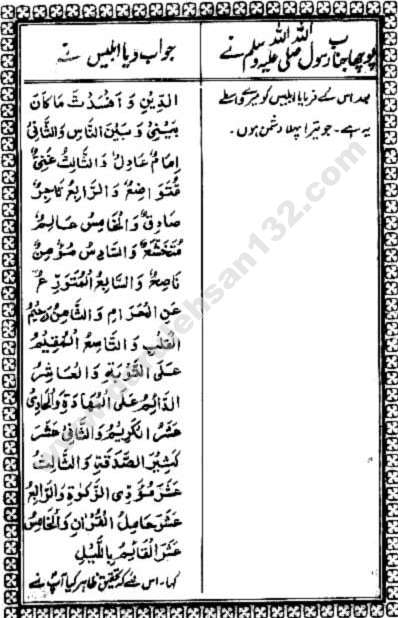 پوچھا جناب رسول اللہ صلی اللہ علیہ وسلم نے
جواب دیا ابلیس نے
بعد اس کے فرمایا ابلیس کو میرے واسطے
یہ ہے۔ جو تیرا پہلا دشمن ہوں۔
الدِّيْنِ وَ اَفْسَدْتَ مَا كَانَ
بَيْنِيْ وَ بَيْنَ النَّاسِ وَالثَّانِيْ
اِمَامٌ عَادِلٌ وَالثَّالِثُ غَنِيٌّ
مُتَوَاضِعٌ وَالرَّابِعُ تَاجِرٌ
صَادِقٌ وَالْخَامِسُ عَالِمٌ
مُتَخَشِّعٌ وَالسَّادِسُ مُؤْمِنٌ
نَاصِحٌ وَالسَّابِعُ الْمُتَوَرِّعُ
عَنِ الْحَرَامِ وَالثَّامِنُ رَحِيْمُ
الْقَلْبِ وَالتَّاسِعُ الْمُقِيْمُ
عَلَى التَّوْبَةِ وَالْعَاشِرُ
الدَّائِمُ عَلَى الطَّهَارَةِ وَالْحَادِيْ
عَشَرَ الْكَرِيْمُ وَالثَّانِيْ عَشَرَ
كَثِيْرُ الصَّدَقَةِ وَالثَّالِثُ
عَشَرَ مُؤَدِّي الزَّكٰوةِ وَالرَّابِعُ
عَشَرَ حَامِلُ الْقُرْاٰنِ وَالْخَامِسُ
عَشَرَ الْقَائِمُ بِاللَّيْلِ
کہا۔ اس نے کہ تحقیق ظاہر کیا آپ نے
ehsan132.com